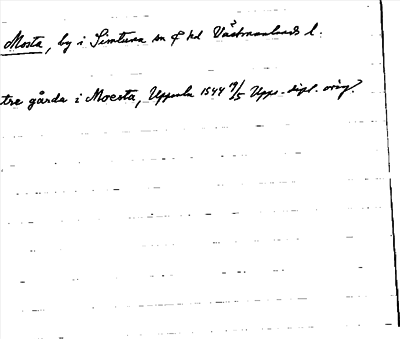 Mosta, by i Simtuna sn & hd Västmanlands l.
tre gårda i Moesta, Uppsala 1544 19/5 Upps. dipl. orig.